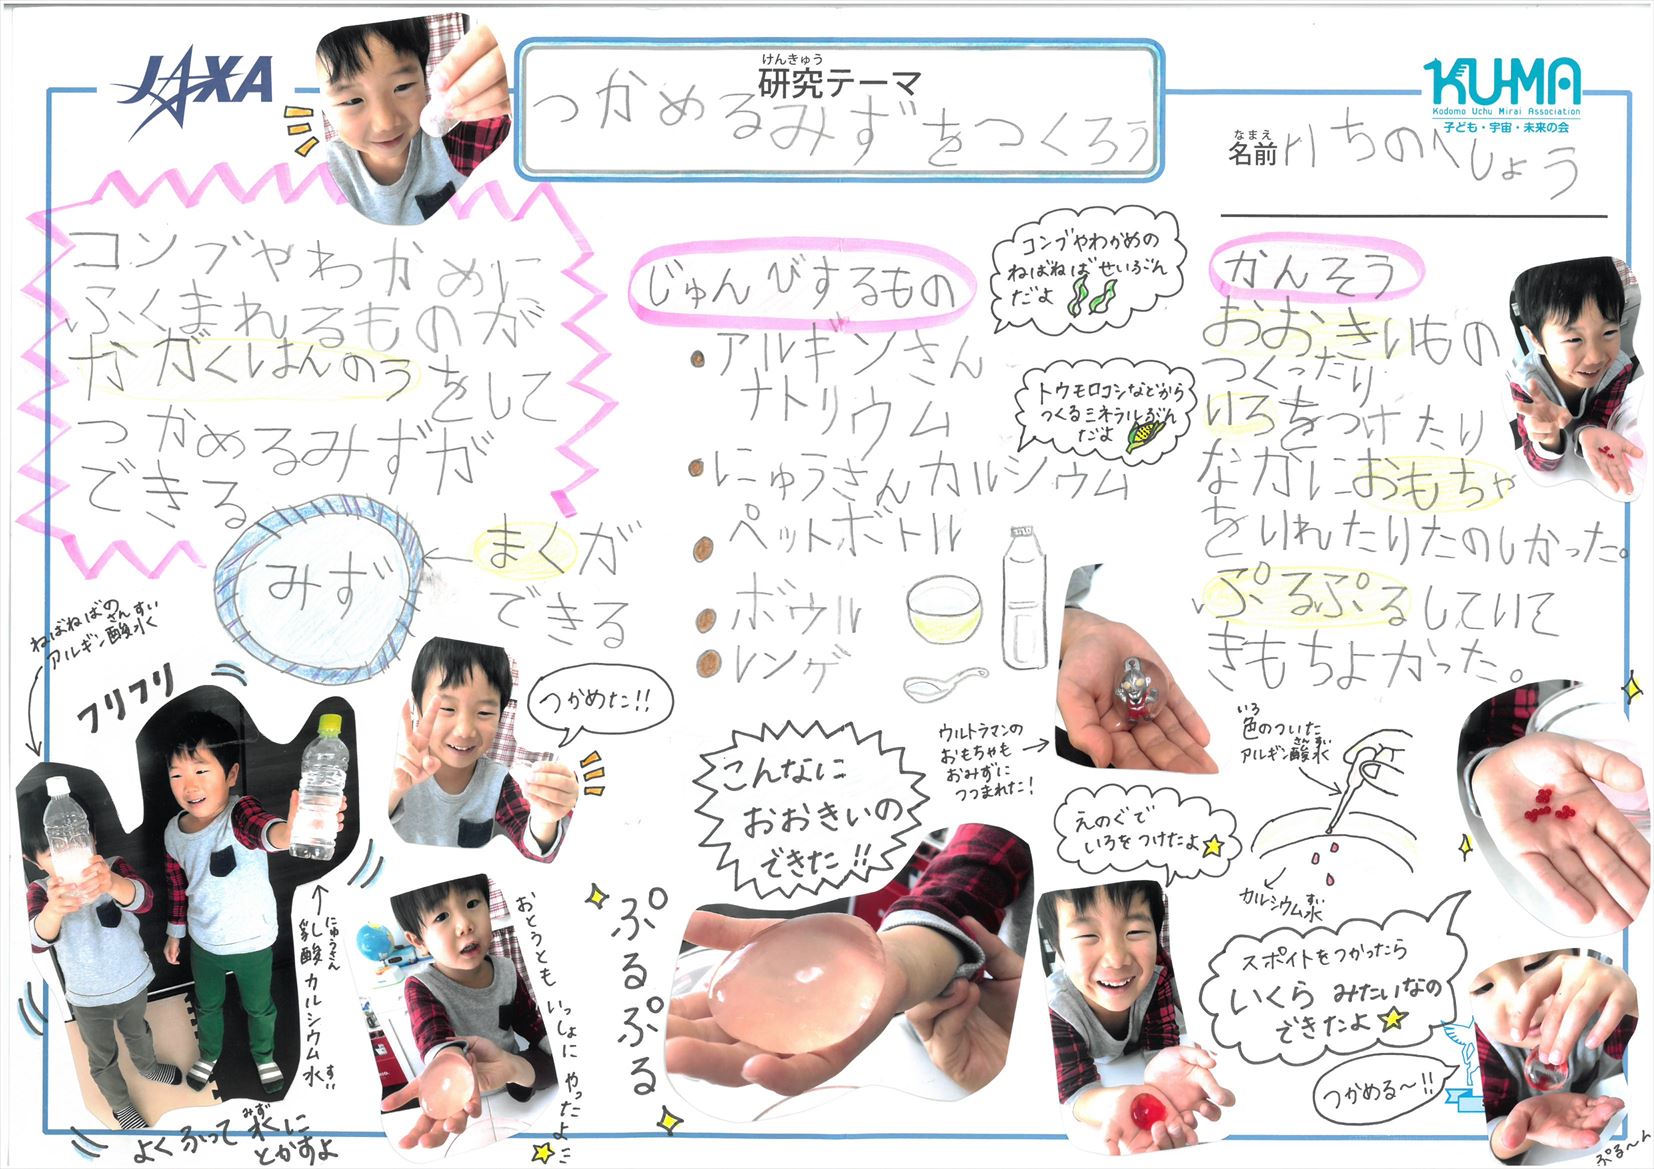 JAXA
けんきゅう
研究テーマ
つかめるみずをつくろう
KU-MA
Kodomo Uchu Mirai Association
子ども・宇宙・未来の会
なまえ
名前 いちのへしょう
コンブやわかめに
ふくまれるものが
かがくはんのうをして
つかめるみずが
できる
みず
まくが
できる
じゅんびするもの
アルギンさん
ナトリウム
にゅうさんカルシウム
ペットボトル
ボウル
レンゲ
コンブやわかめの
ねばねばせいぶん
だよ
トウモロコシなどから
つくるミネラルぶん
だよ
かんそう
おおきいもの
つくったり
いろをつけたり
なかにおもちゃ
をいれたりたのしかった。
ぷるぷるしていて
きもちよかった。
ねばねばの
さんすい
アルギン酸水
フリフリ
にゅうさん すい
乳酸カルシウム水
みず
よくふって水に
とかすよ
つかめた!!
おとうともいっしょにやったよ
こんなに
おおきいの
できた!!
ぷるぷる
ウルトラマンの
おもちゃも
おみずに
つつまれた!
えのぐで
いろをつけたよ
いろ
色のついた
さんすい
アルギン酸水
すい
カルシウム水
スポイトをつかったら
いくらみたいなの
できたよ
つかめる〜!!
ぷる〜ん